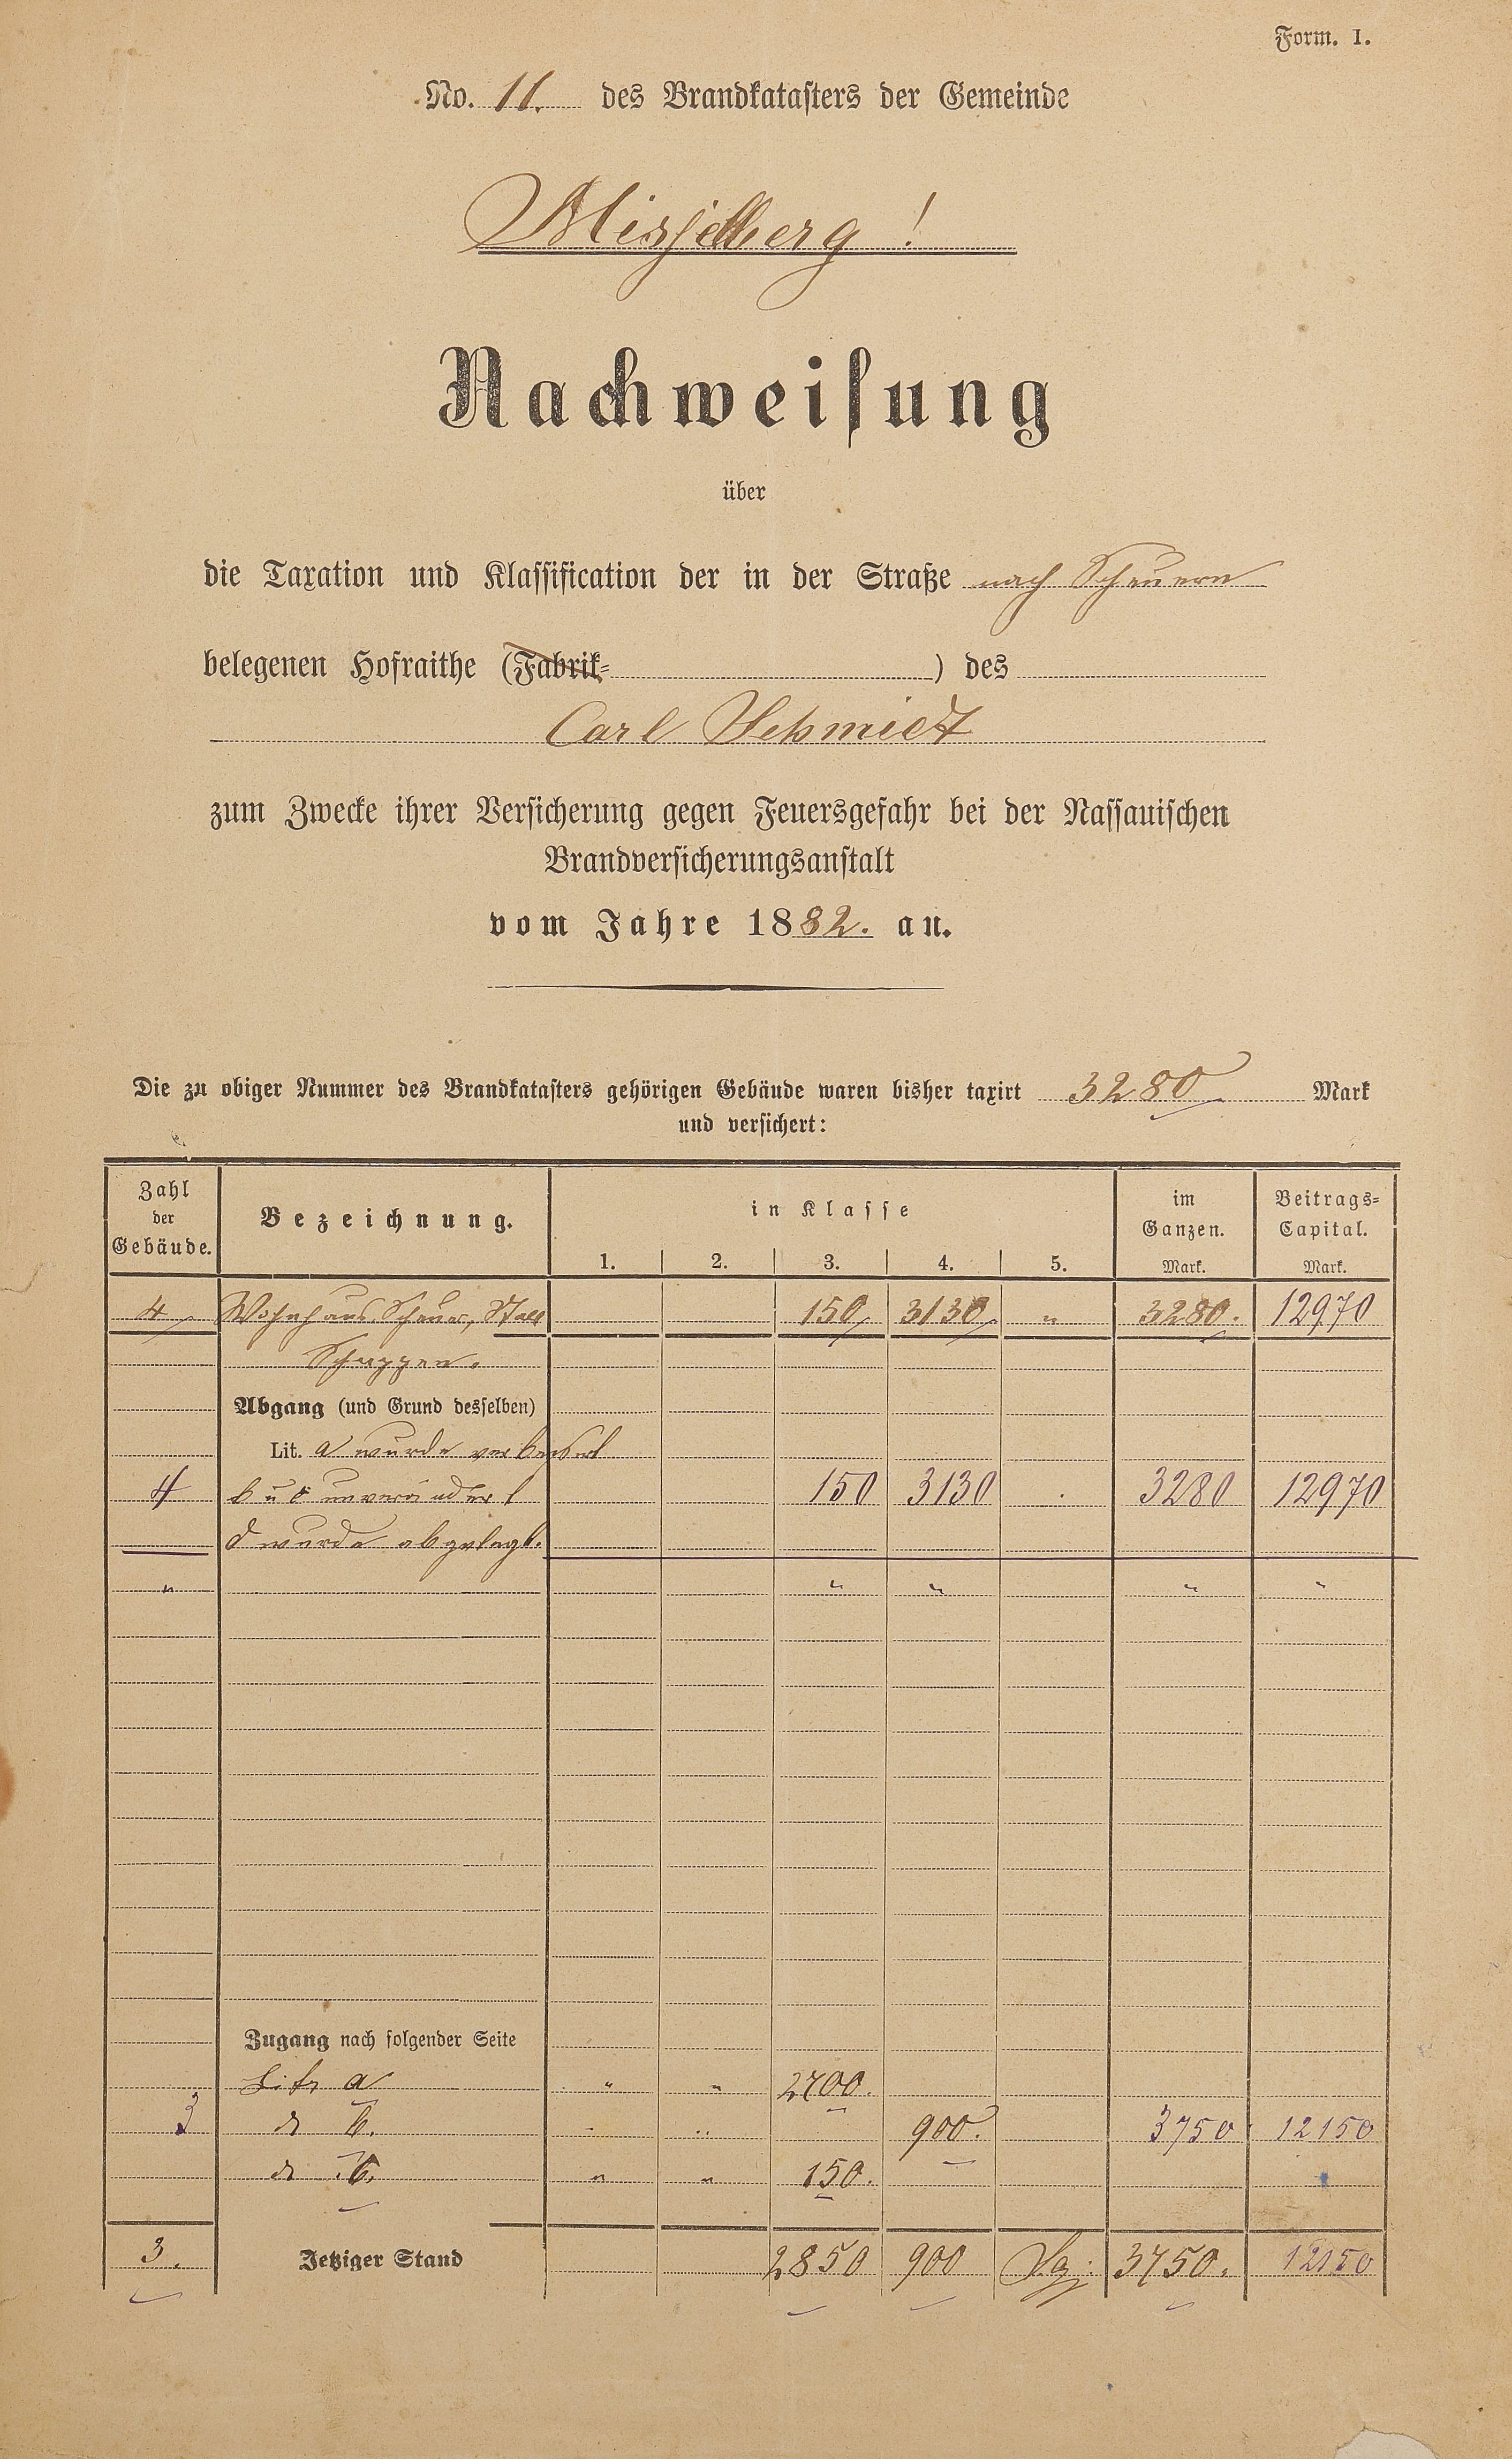 Form. I.
No. 11. des Brandkatasters der Gemeinde
Misselberg!
Nachweisung
über
die Taxation und Klassification der in der Straße nach Scheuern
belegenen Hofraithe (Fabrik= ) des
Carl Schmidt
zum Zwecke ihrer Versicherung gegen Feuersgefahr bei der Nassauischen
Brandversicherungsanstalt
vom Jahre 1882. an.
Die zu obiger Nummer des Brandkatasters gehörigen Gebäude waren bisher taxirt 3280 Mark
und versichert:
Zahl der Gebäude. Bezeichnung. in Klasse im Ganzen. Beitrags=Capital.
1. 2. 3. 4. 5. Mark. Mark.
4 Wohnhaus, Scheuer, Stall 150 3130 " 3280. 12970
Schuppen.
Abgang (und Grund desselben)
Lit. a wurde verbessert
4 b u c unverändert 150 3130 . 3280 12970
d wurde abgelegt.
" " " " "
Zugang nach folgender Seite
Litr a " " 2700.
3 do b. 900. 3750 12150
do c. " " 150.
3. Jetziger Stand 2850 900 3750. 12150